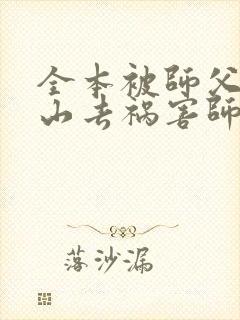 全本被師父
山去禍害師
落沙漏